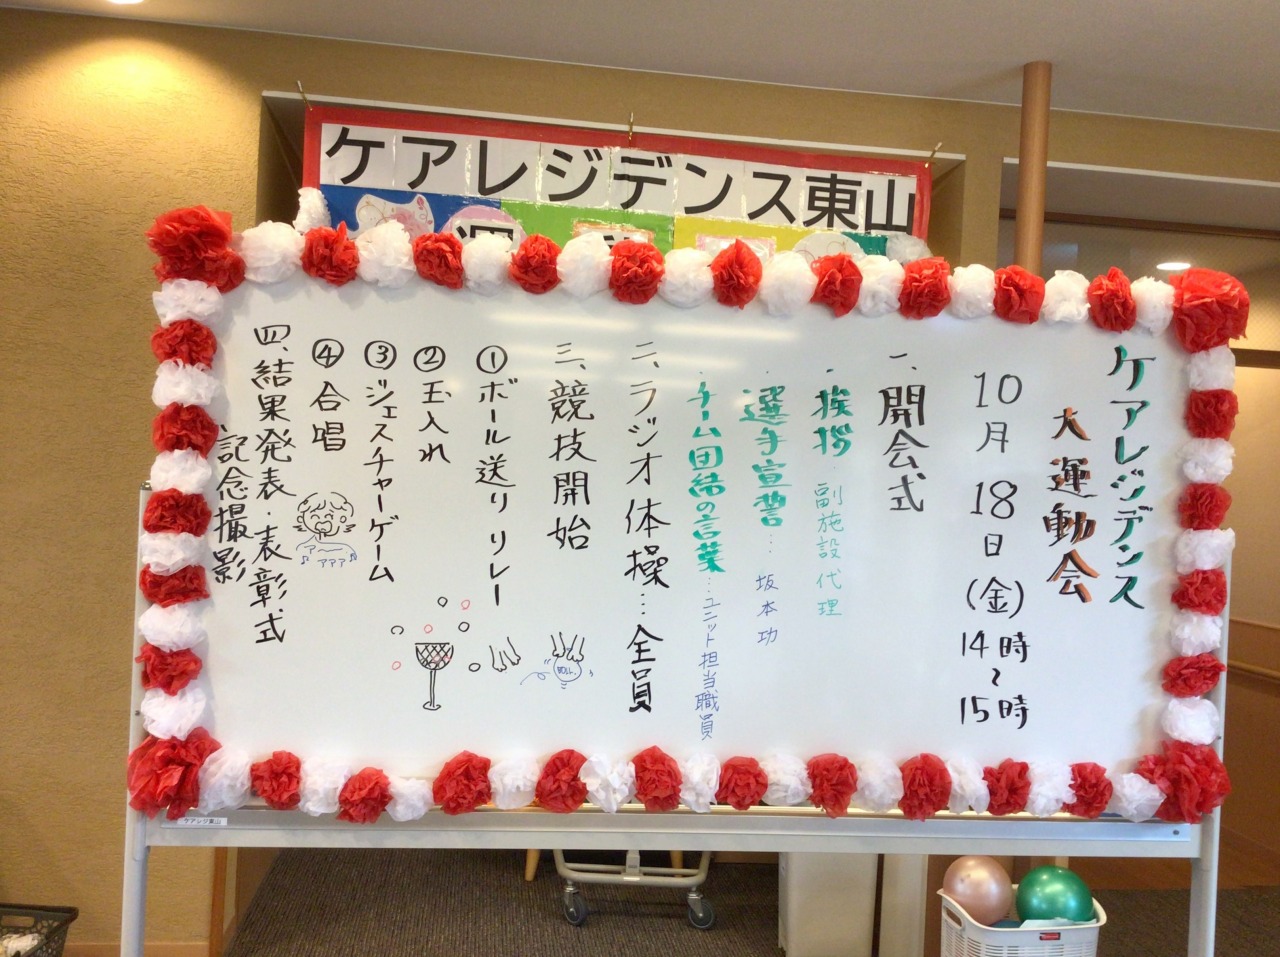 ケアレジデンス東山
ケアレジデンス
大運動会
10月18日(金)14時~15時
一、開会式
・挨拶 副施設代理
・選手宣誓… 坂本功
・チーム団結の言葉…ユニット担当職員
二、ラジオ体操…全員
三、競技開始
①ボール送りリレー
②玉入れ
③ジェスチャーゲーム
④合唱
アー
アアア
四、結果発表・表彰式
記念撮影
ケアレジ東山